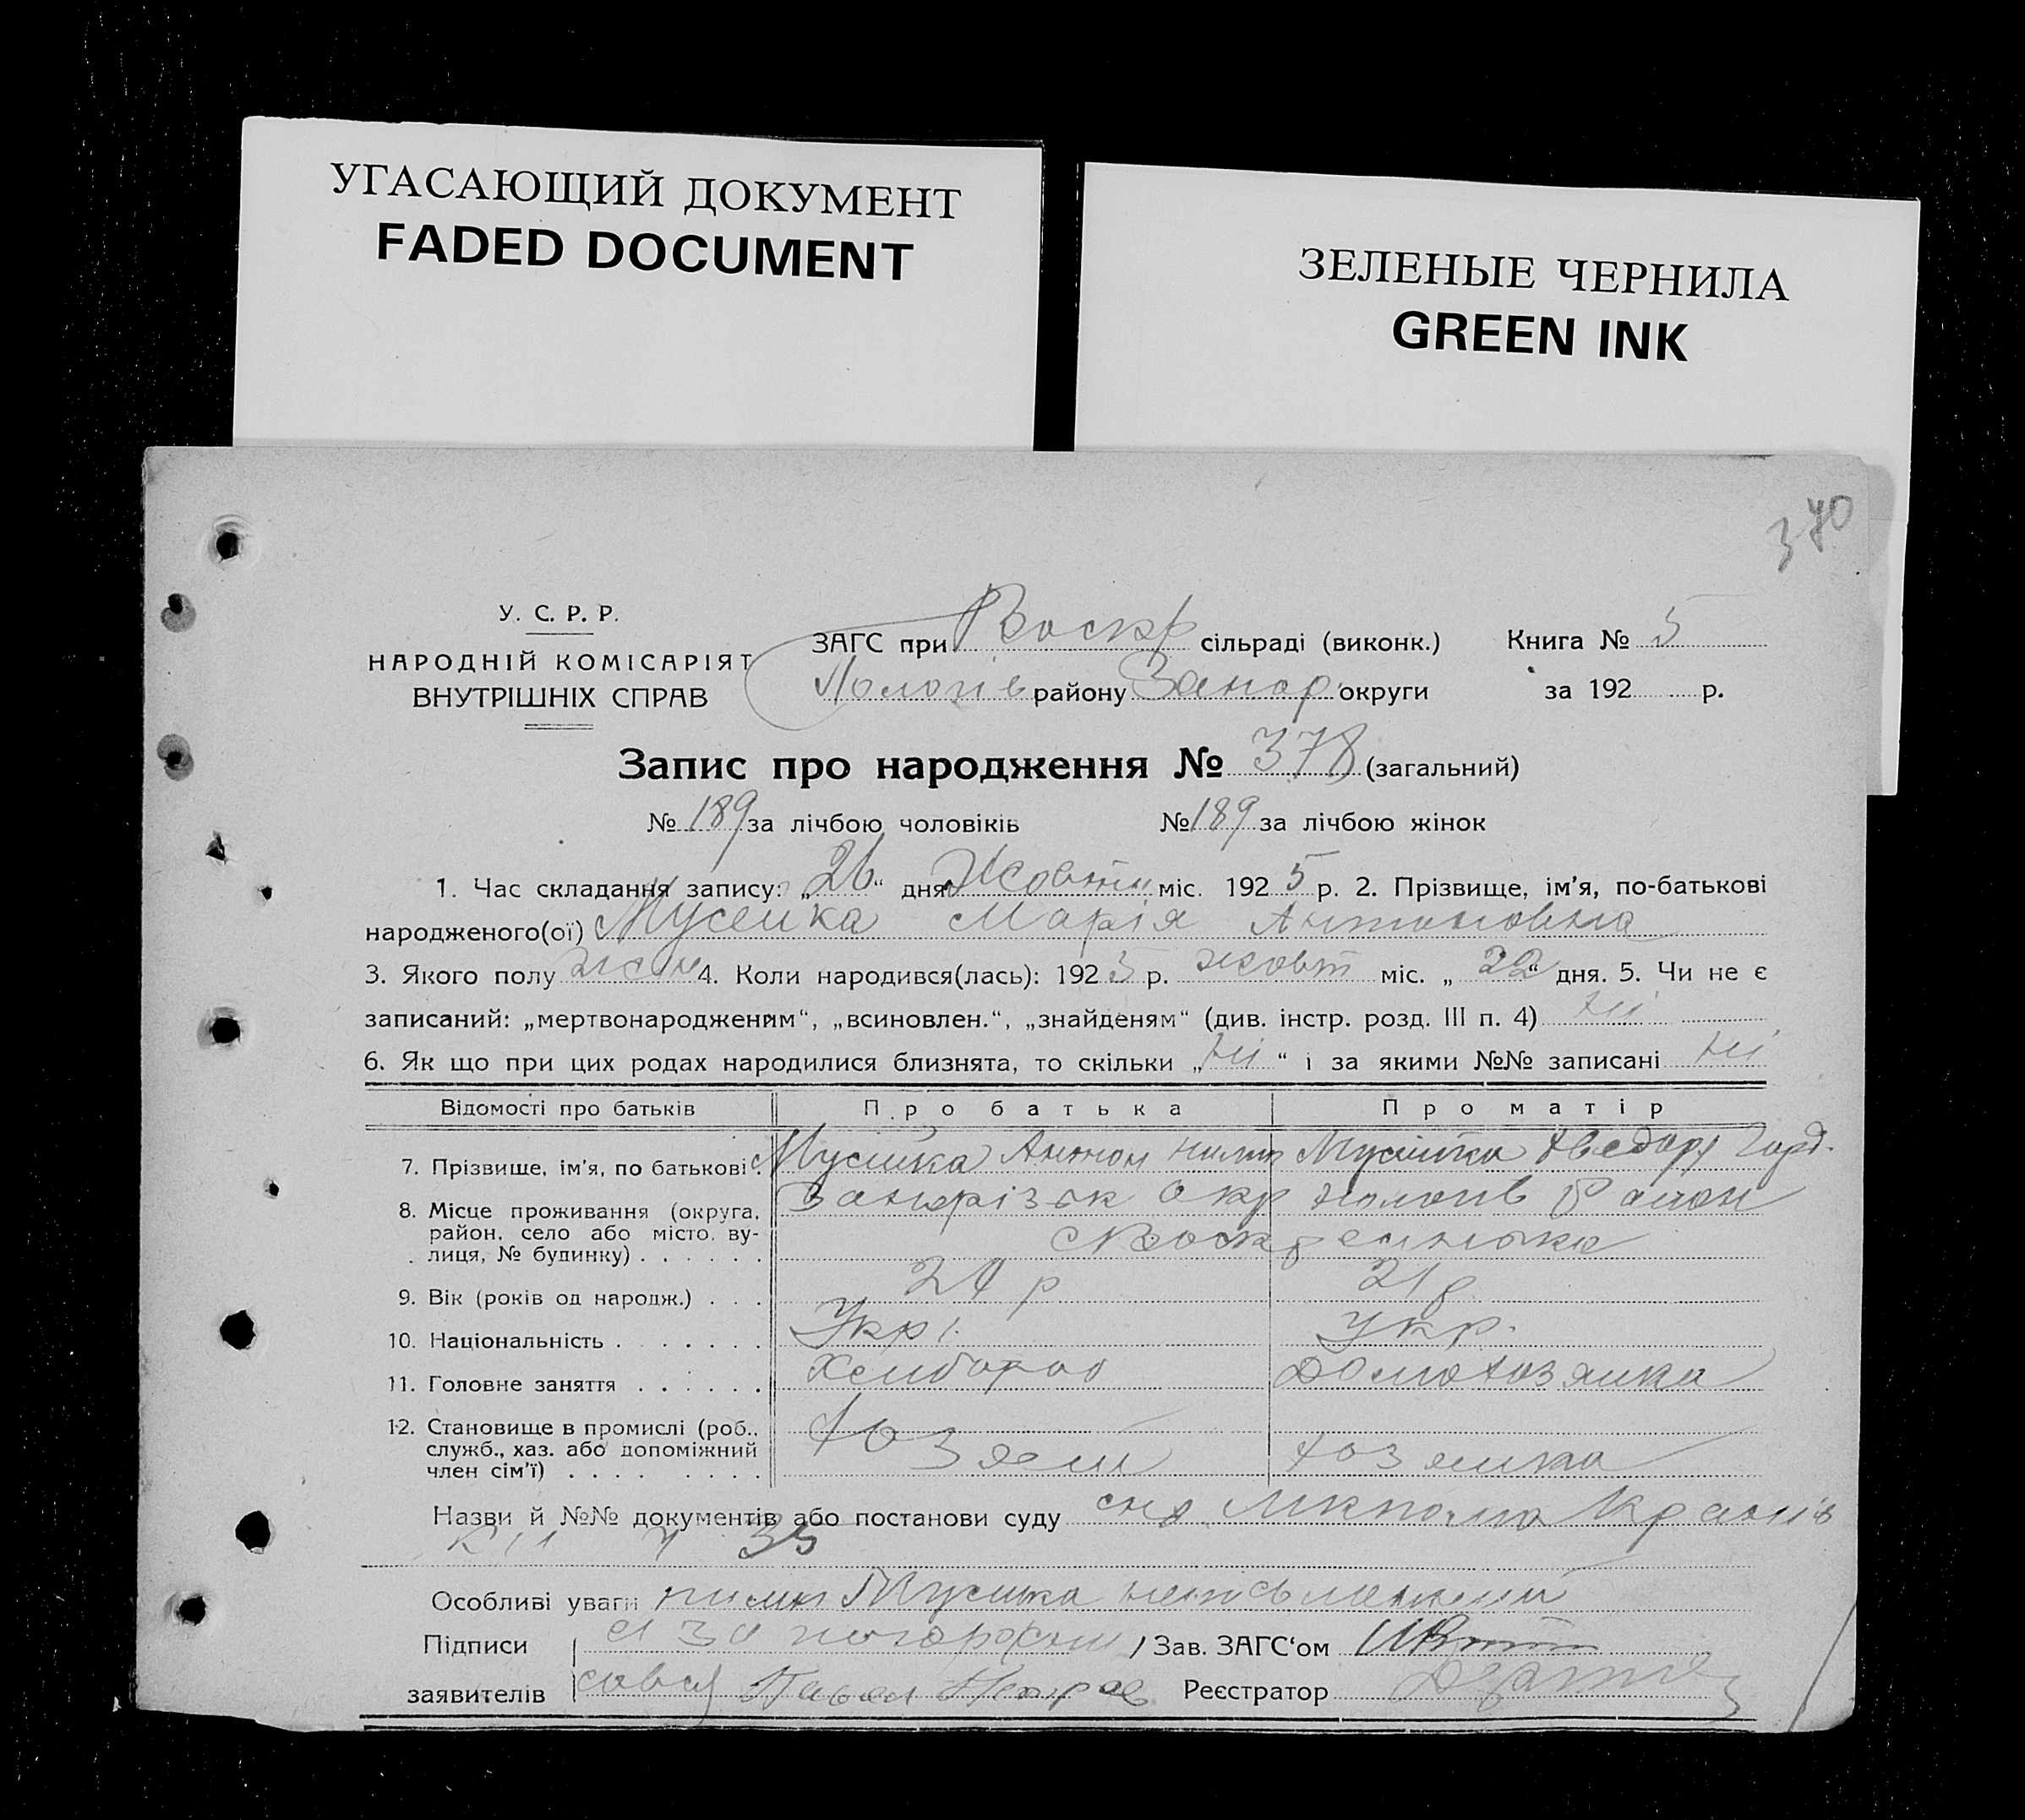 УГАСАЮЩИЙ ДОКУМЕНТ
FADED DOCUMENT
ЗЕЛЕНЫЕ ЧЕРНИЛА
GREEN INK
370
У. С. Р. Р.
НАРОДНІЙ КОМІСАРІЯТ
ВНУТРІШНІХ СПРАВ
ЗАГС при Воскр сільраді (виконк.) Книга № 5
Пологів району Запор. округи за 192 р.
Запис про народження № 378 (загальний)
№ 189 за лічбою чоловіків № 189 за лічбою жінок
1. Час складання запису: „26“ дня Жовтн міс. 1925 р. 2. Прізвище, ім'я, по-батькові
народженого(ої) Мусійка Марія Антоновна
3. Якого полу жін 4. Коли народився(лась): 1925 р. жовт міс. „22“ дня. 5. Чи не є
записаний: „мертвонародженям“, „всиновлен.“, „знайденям“ (див. інстр. розд. III п. 4) ні
6. Як що при цих родах народилися близнята, то скільки „ні“ і за якими №№ записані ні
Відомості про батьків Про батька Про матір
7. Прізвище, ім'я, по батькові. Мусійка Антон Мусійка Гард.
8. Місце проживання (округа, район, село або місто, ву-
лиця, № будинку) Запорізьк окр пологів Район
Воскресенька
9. Вік (років од народж.) 24 р 21 р
10. Національність Укр. Укр.
11. Головне заняття Хлібороб Домохозяйка
12. Становище в промислі (роб.,
служб., хаз. або допоміжний
член сім'ї) Хозяїн хозяйка
Назви й №№ документів або постанови суду
35
Особливі уваги Мусійка неписьменний
Підписи Зав. ЗАГС'ом
заявителів Павел Реєстратор